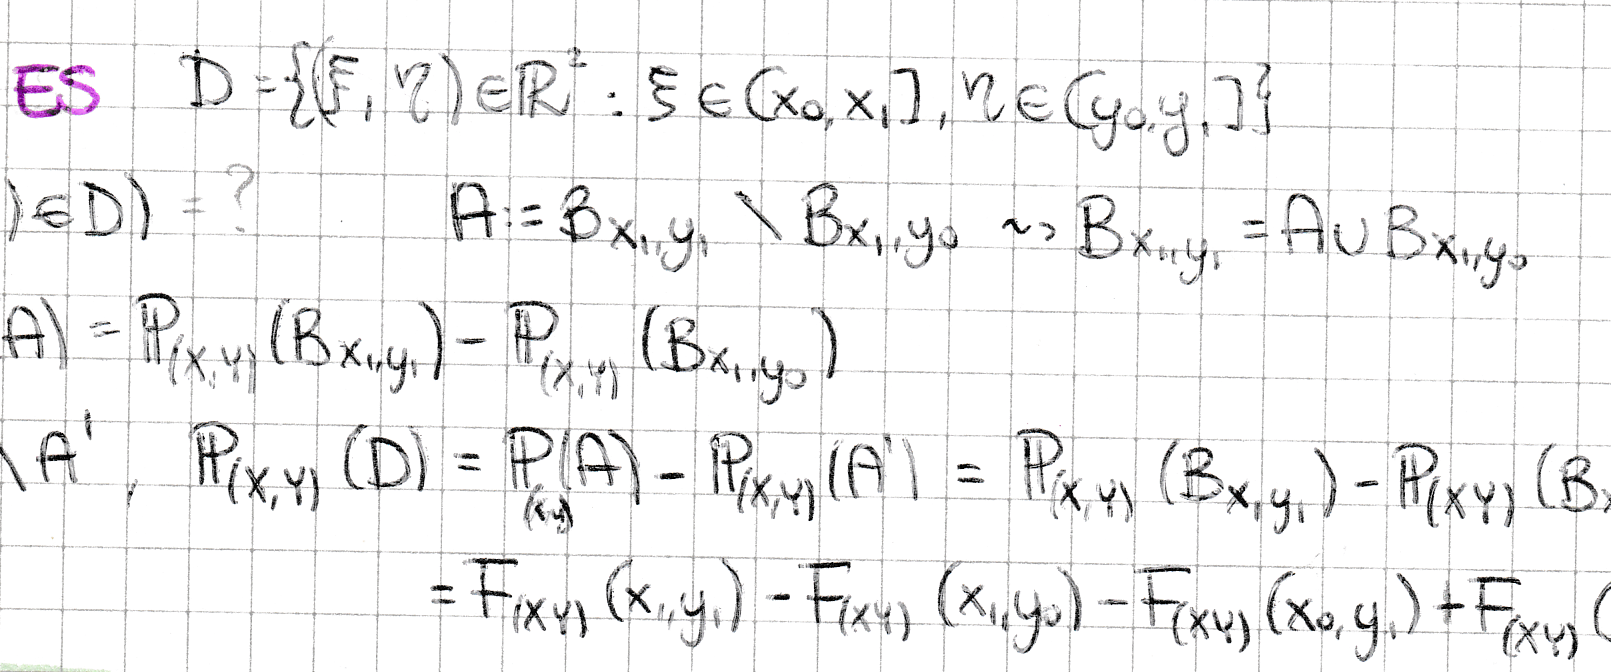 ES D = {(ξ, η) ∈ ℝ² : ξ ∈ (x₀, x₁], η ∈ (y₀, y₁]}
) ∈ D) = ? A := B_{x₁,y₁} \ B_{x₁,y₀} ⇝ B_{x₁,y₁} = A ∪ B_{x₁,y₀}
A) = ℙ_{(X,Y)} (B_{x₁,y₁}) - ℙ_{(X,Y)} (B_{x₁,y₀})
\ A', ℙ_{(X,Y)} (D) = ℙ_{(X,Y)} (A) - ℙ_{(X,Y)} (A') = ℙ_{(X,Y)} (B_{x₁,y₁}) - ℙ_{(XY)} (B
= F_{(XY)} (x₁,y₁) - F_{(XY)} (x₁,y₀) - F_{(XY)} (x₀,y₁) + F_{(XY)} (